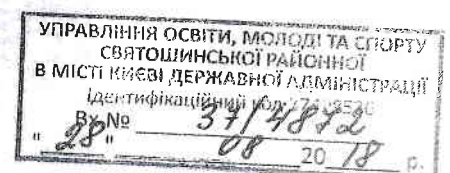 УПРАВЛІННЯ ОСВІТИ, МОЛОДІ ТА СПОРТУ
СВЯТОШИНСЬКОЇ РАЙОННОЇ
В МІСТІ КИЄВІ ДЕРЖАВНОЇ АДМІНІСТРАЦІЇ
Ідентифікаційний код
Вх № 37/4872
"28" 08 2018 р.